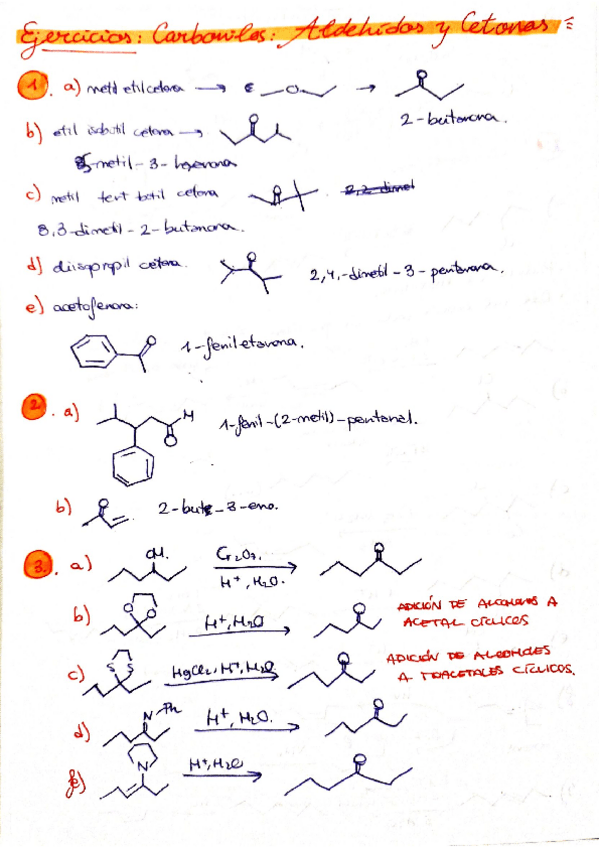 Ejercicios: Carbonilos: Aldehídos y Cetonas
1. a) metil etil cetona → → 
2-butanona.
b) etil isobutil cetona →
5-metil-3-hexanona
c) metil tert butil cetona 2,2-dimet
3,3-dimetil-2-butanona.
d) diisopropil cetona. 2,4,-dimetil-3-pentanona.
e) acetofenona:
1-feniletanona.
2. a) H
O
1-fenil-(2-metil)-pentanal.
b) 2-but-3-eno.
3. a) OH. Cr2O7. O
H+, H2O.
b) O O H+, H2O O ADICIÓN DE ALCOHOLES A
ACETAL CÍCLICOS
c) S S HgCl2, H+, H2O O ADICIÓN DE ALCOHOLES
A TIOACETALES CÍCLICOS.
d) N-Ph H+, H2O. O
e) N H+, H2O O